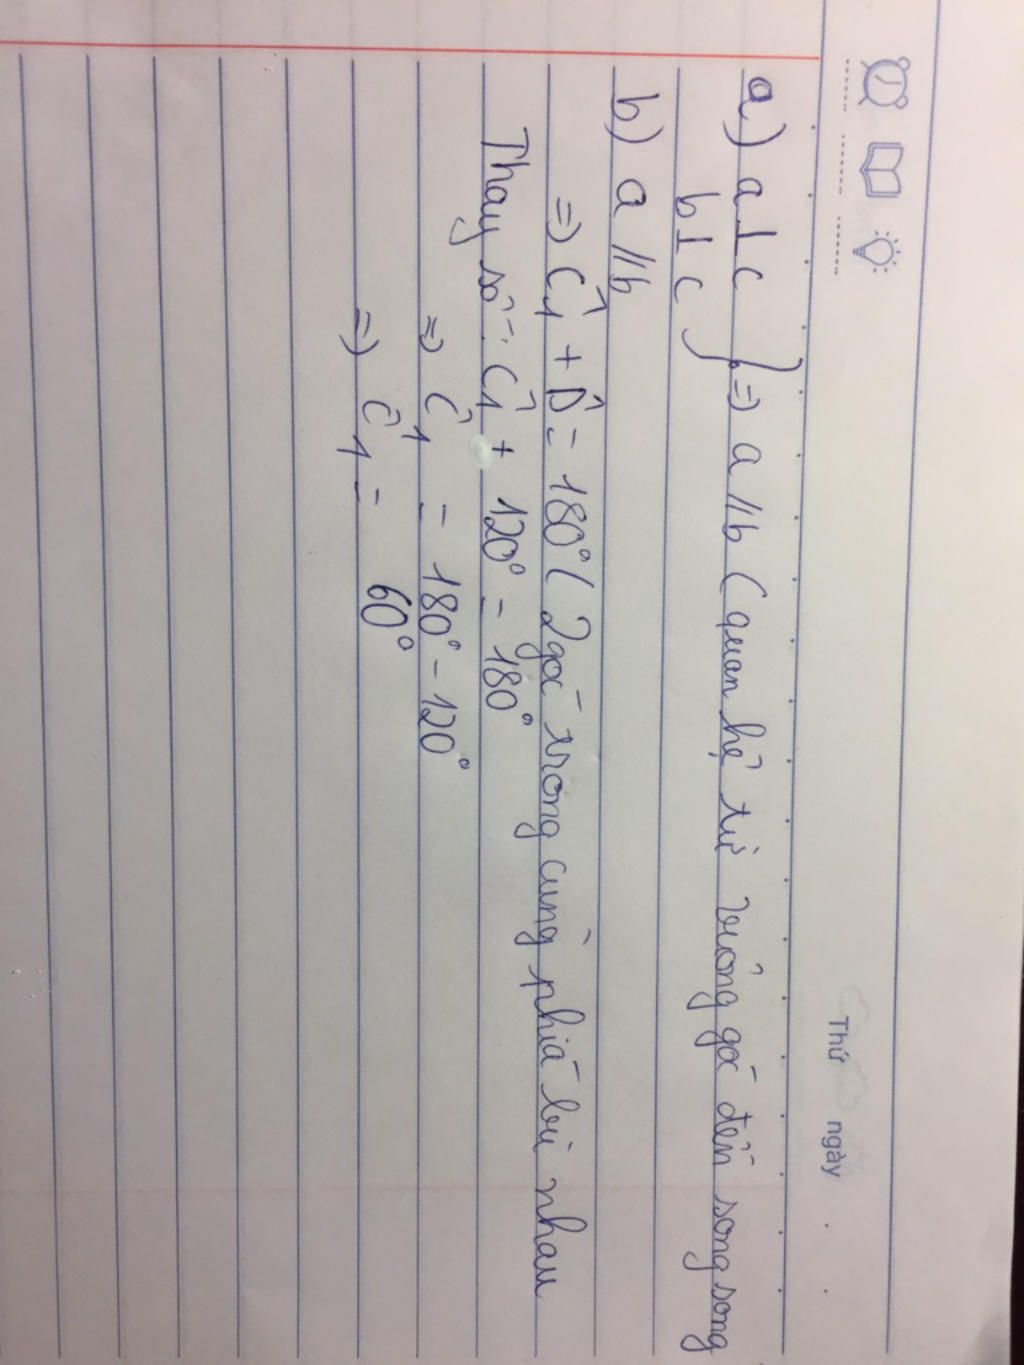 Thứ ngày
a) a⊥c } => a // b (quan hệ từ vuông góc đến song song
b⊥c
b) a // b
=> Ĉ₁ + D̂ = 180° ( 2 góc trong cùng phía bù nhau
Thay số: Ĉ₁ + 120° = 180°
=> Ĉ₁ = 180° - 120°
=> Ĉ₁ = 60°